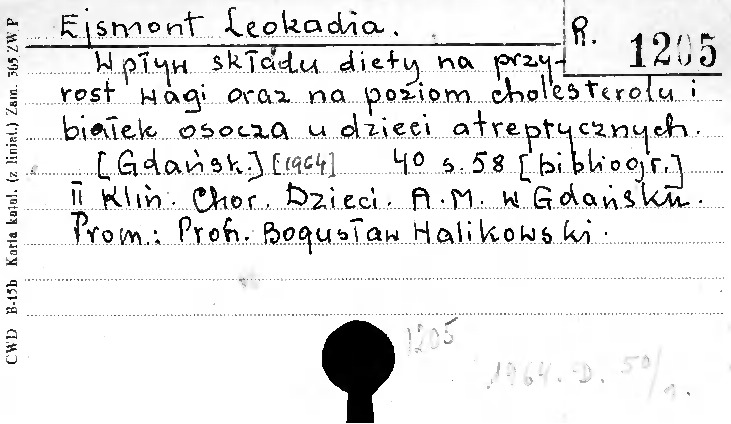 Ejsmont Leokadia.
R. 1205
Wpływ składu diety na przy-
rost wagi oraz na poziom cholesterolu i
białek osocza u dzieci atreptycznych.
[Gdańsk.] [1964] 4° s. 58 [bibliogr.]
II Klin. Chor. Dzieci. A.M. w Gdańsku.
Prom.: Prof. Bogusław Halikowski.
1205
1964. D. 50/1.
CWD B-15b Karta katal. (z liniat.) Zam. 305 ZWP